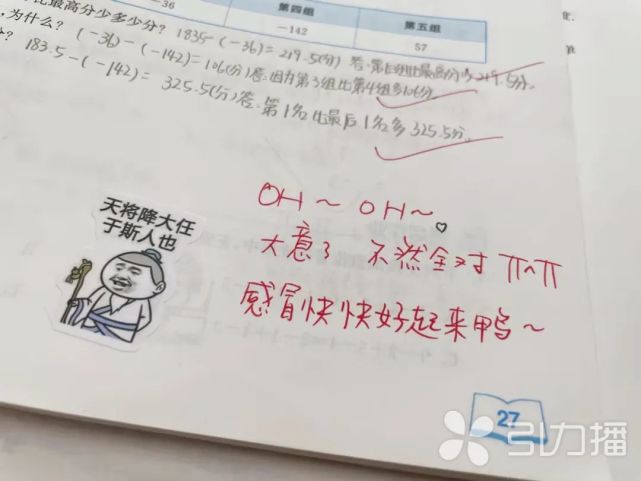 -36 第四组 第五组
-142 57
比最高分少多少分? 183.5-(-36)=219.5(分)
为什么? (-36)-(-142)=106(分) 答:因为第3组比第4组多106分
? 183.5-(-142)= 325.5(分)答:第1名比最后1名多325.5分。
天将降大任
于斯人也
OH~ OH~♡
大意了 不然全对 π^π
感冒快快好起来鸭~
27
引力播